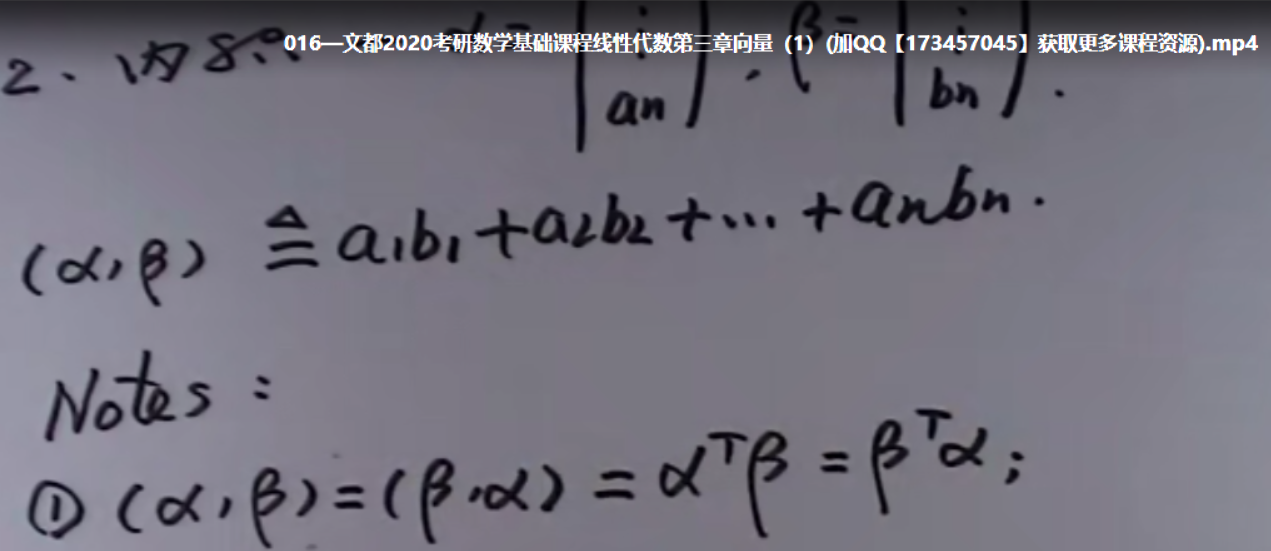 016—文都2020考研数学基础课程线性代数第三章向量（1）(加QQ【173457045】获取更多课程资源).mp4
2、内
an , β = bn .
(α, β) ≜ a₁b₁ + a₂b₂ + ... + anbn .
Notes :
① (α, β) = (β, α) = αᵀβ = βᵀα ;